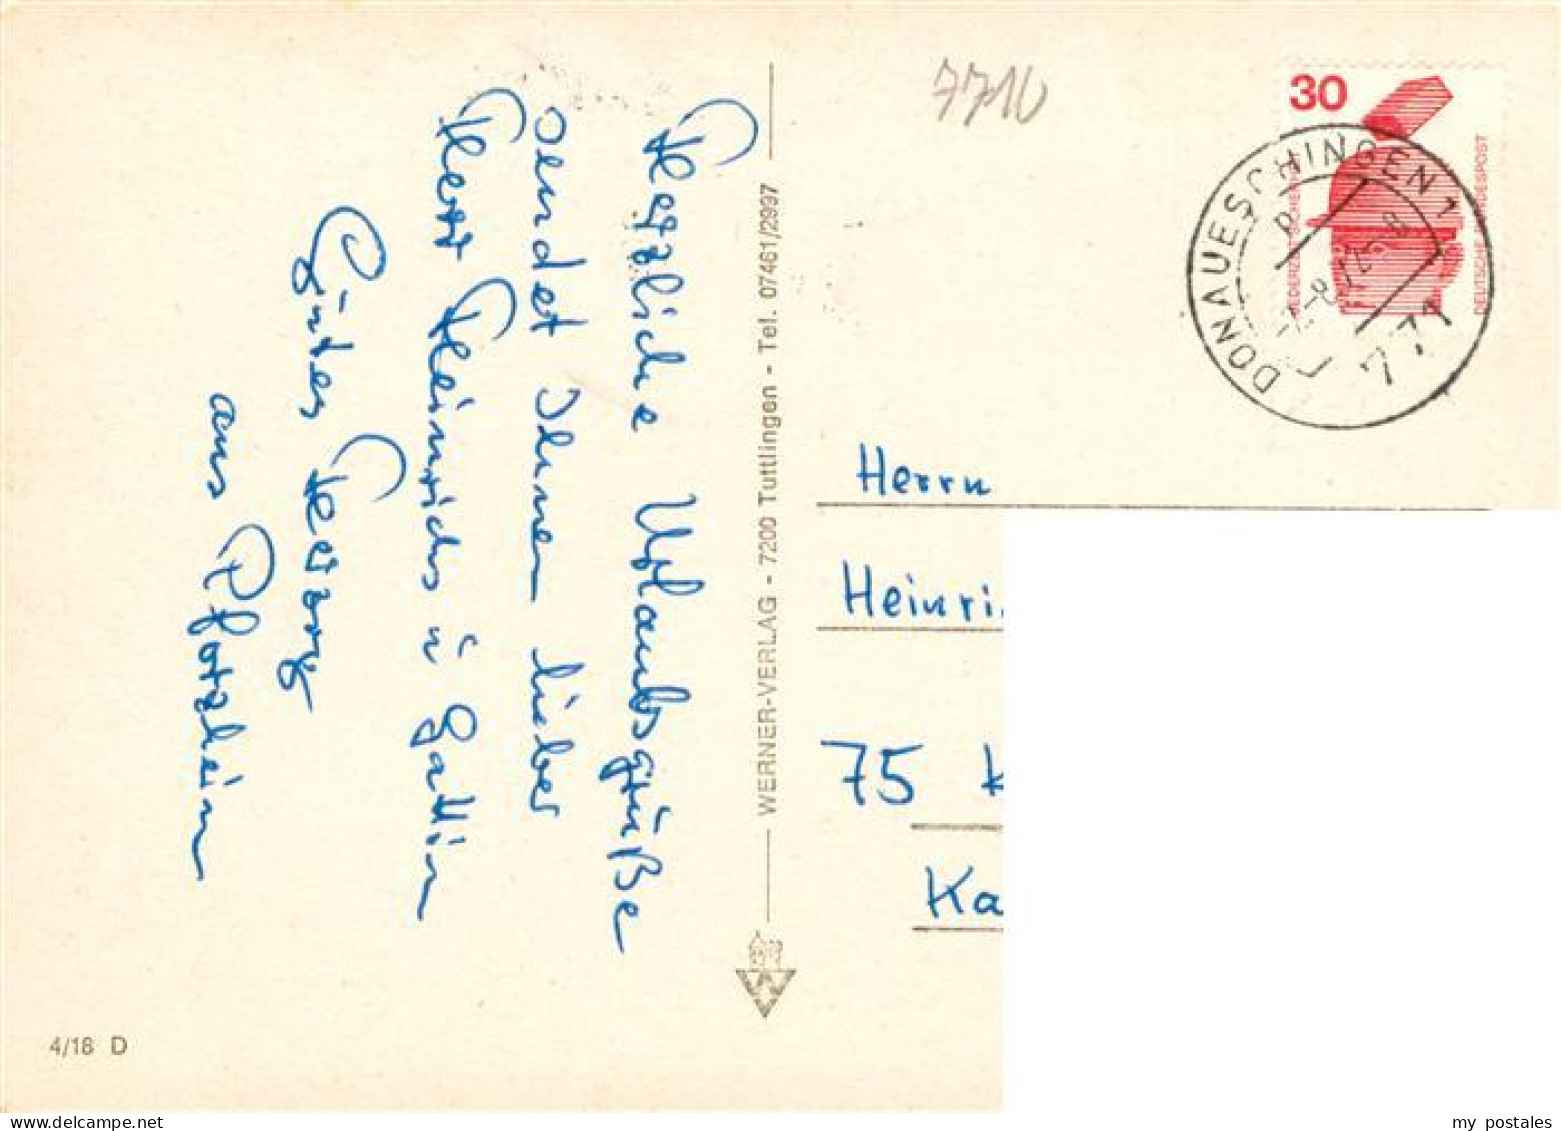 Herzliche Urlaubsgrüße
sendet Ihnen lieber
Herr Heinrichs u. Gattin
Günter Herzog
aus Pforzheim
WERNER-VERLAG - 7200 Tuttlingen - Tel. 07461/2997
4/18 D
7710
30
DEUTSCHE BUNDESPOST
DONAUESCHINGEN 1
771
Herrn
Heinri
75 K
Ka
my postales